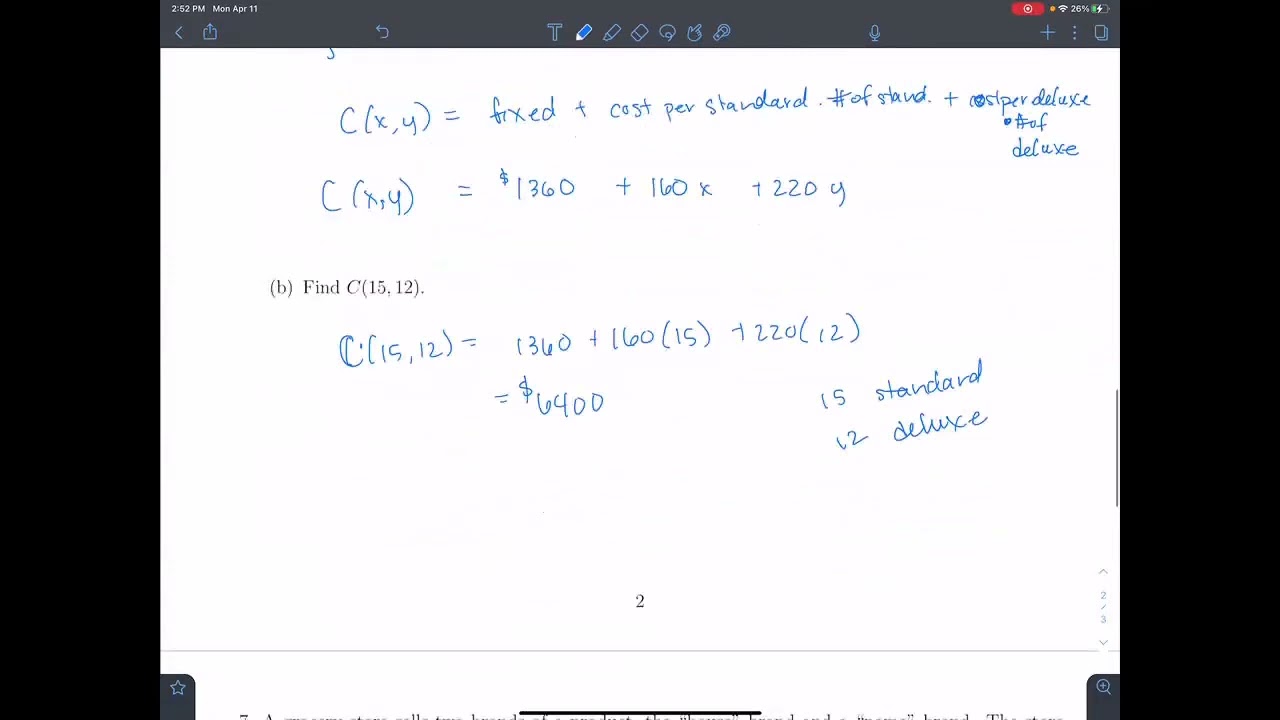 2:52 PM Mon Apr 11
26%
C(x,y) = fixed + cost per standard . # of stand. + cost per deluxe
• # of
deluxe
C(x,y) = $1360 + 160 x + 220 y
(b) Find C(15, 12).
C(15,12) = 1360 + 160(15) + 220(12)
= $6400
15 standard
12 deluxe
2
2
/
3